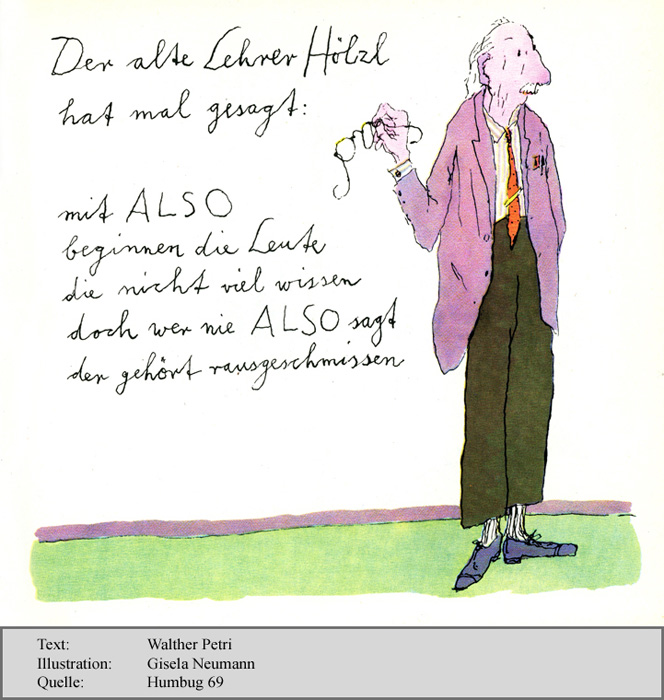 Der alte Lehrer Hölzl
hat mal gesagt:
mit ALSO
beginnen die Leute
die nicht viel wissen
doch wer nie ALSO sagt
der gehört rausgeschmissen
Text: Walther Petri
Illustration: Gisela Neumann
Quelle: Humbug 69